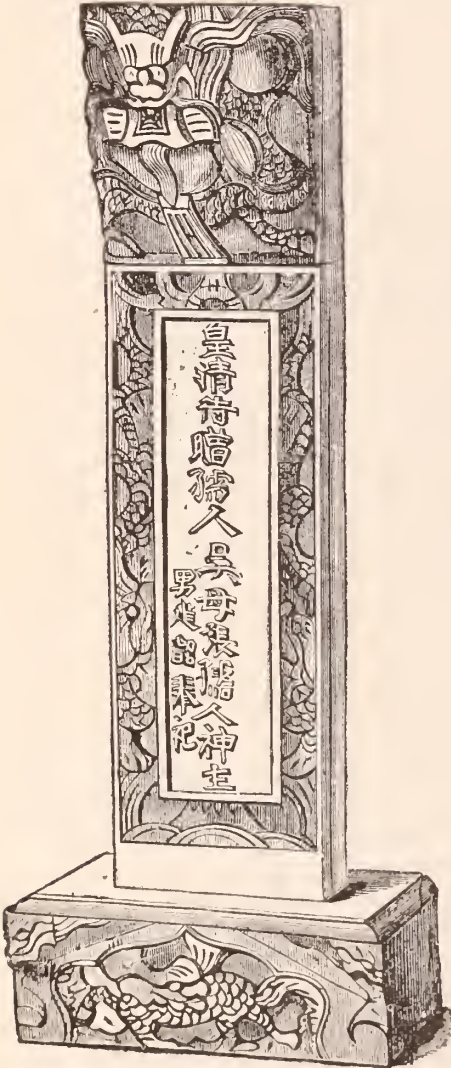 皇清待贈孺人吳母張孺人神主
男 奉祀